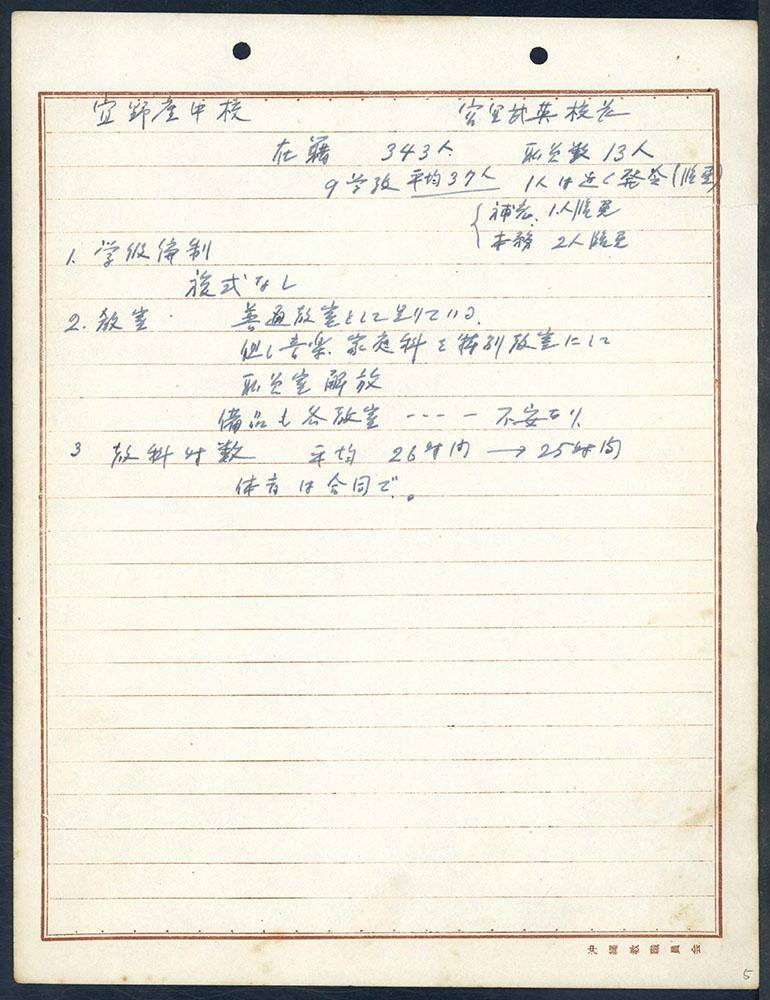 宜野座中校 宮里武英校長
在籍 343人 職員数 13人
9学級 平均37人 1人は近く発令(臨更)
補充 1人臨更
本務 2人臨更
1. 学級編制
複式なし
2. 教室 普通教室として足りている.
但し音楽、家庭科を特別教室にして
職員室解放
備品も各教室 ---- 不安なり
3 教科時数 平均 26時間 → 25時間
体育は合同で。
沖縄教職員会
5